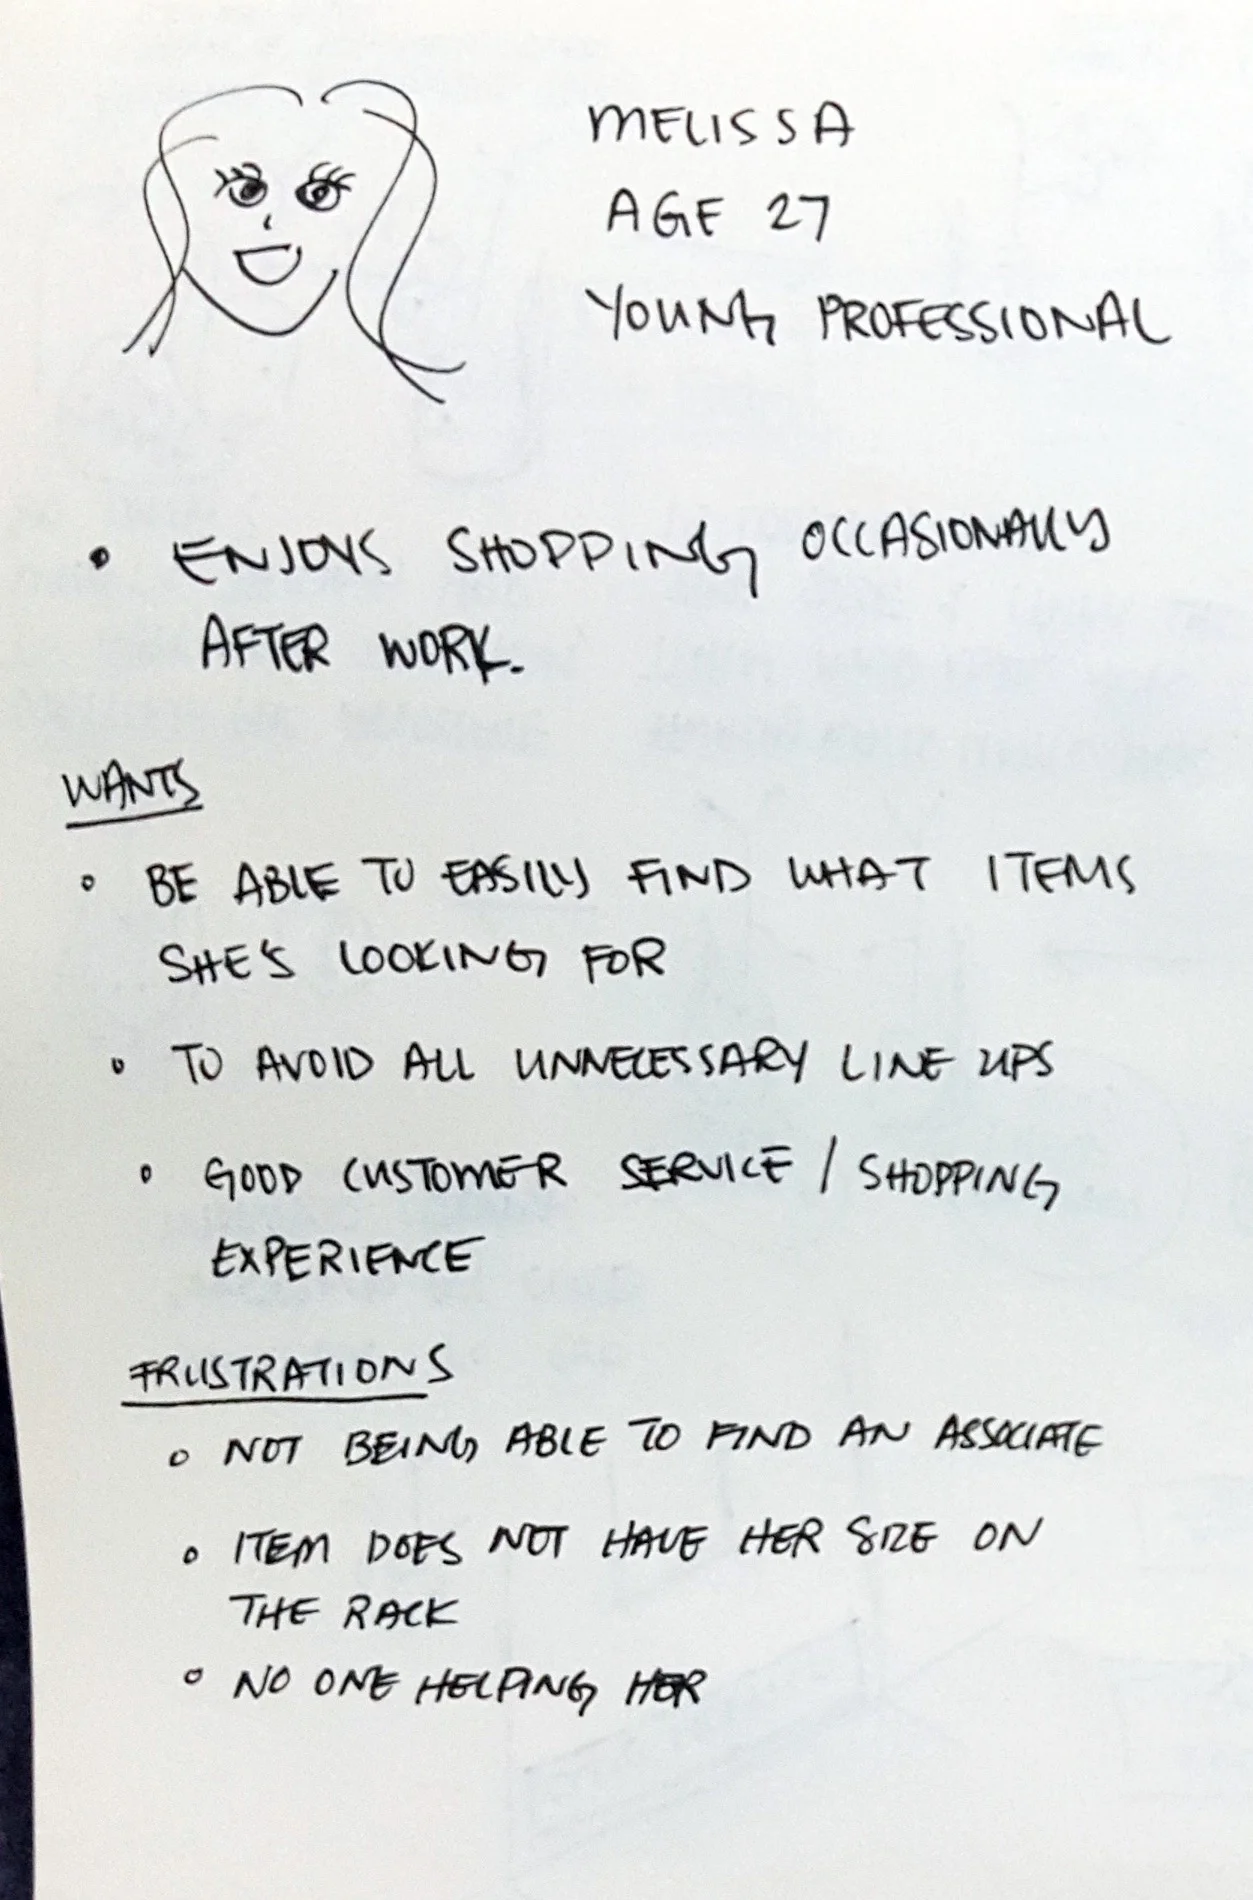 MELISSA
AGE 27
YOUNG PROFESSIONAL
• ENJOYS SHOPPING OCCASIONALLY
AFTER WORK.
WANTS
• BE ABLE TO EASILY FIND WHAT ITEMS
SHE'S LOOKING FOR
• TO AVOID ALL UNNECESSARY LINE UPS
• GOOD CUSTOMER SERVICE / SHOPPING
EXPERIENCE
FRUSTRATIONS
• NOT BEING ABLE TO FIND AN ASSOCIATE
• ITEM DOES NOT HAVE HER SIZE ON
THE RACK
• NO ONE HELPING HER